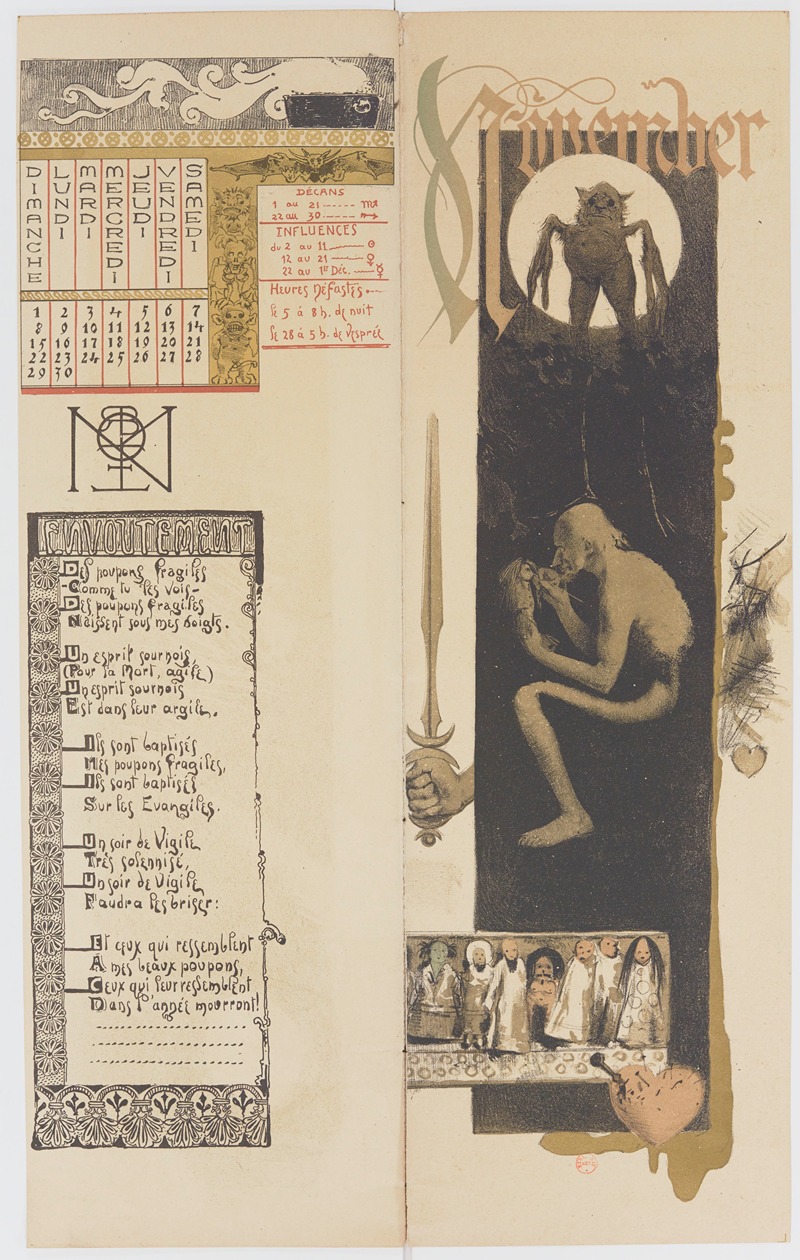 November
DIMANCHE LUNDI MARDI MERCREDI JEUDI VENDREDI SAMEDI
1 2 3 4 5 6 7
8 9 10 11 12 13 14
15 16 17 18 19 20 21
22 23 24 25 26 27 28
29 30
DÉCANS
1 au 21 ------ ♏
22 au 30 ----- ♐
INFLUENCES
du 2 au 11 —— ☉
12 au 21 —— ♀
22 au 1er Déc. —— ☿
Heures Néfastes.
le 5 à 8 h. de nuit
le 28 à 5 h. de vesprée
ENVOUTEMENT
Des poupons fragiles
-Comme tu les vois-
Des poupons fragiles
Naissent sous mes doigts.
Un esprit sournois,
(Pour la Mort, agile)
Un esprit sournois
Est dans leur argile.
Ils sont baptisés
Mes poupons fragiles,
Ils sont baptisés
Sur les Evangiles.
Un soir de Vigile
Très solennisé,
Un soir de Vigile
Faudra les briser:
Et ceux qui ressemblent
A mes beaux poupons,
Ceux qui leur ressemblent
Dans l'année mourront!